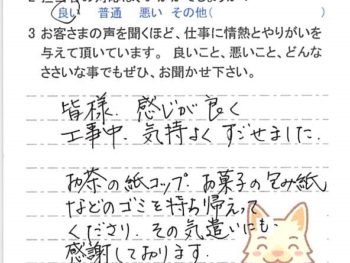 良い 普通 悪い その他( )
3 お客さまの声を聞くほど、仕事に情熱とやりがいを
与えて頂いています。 良いこと、悪いこと、どんな
ささいな事でもぜひ、お聞かせ下さい。
皆様、感じが良く
工事中、気持よくすごせました。
お茶の紙コップ、お菓子の包み紙
などのゴミを持ち帰えって
くださり、その気遣いにも
感謝しております。